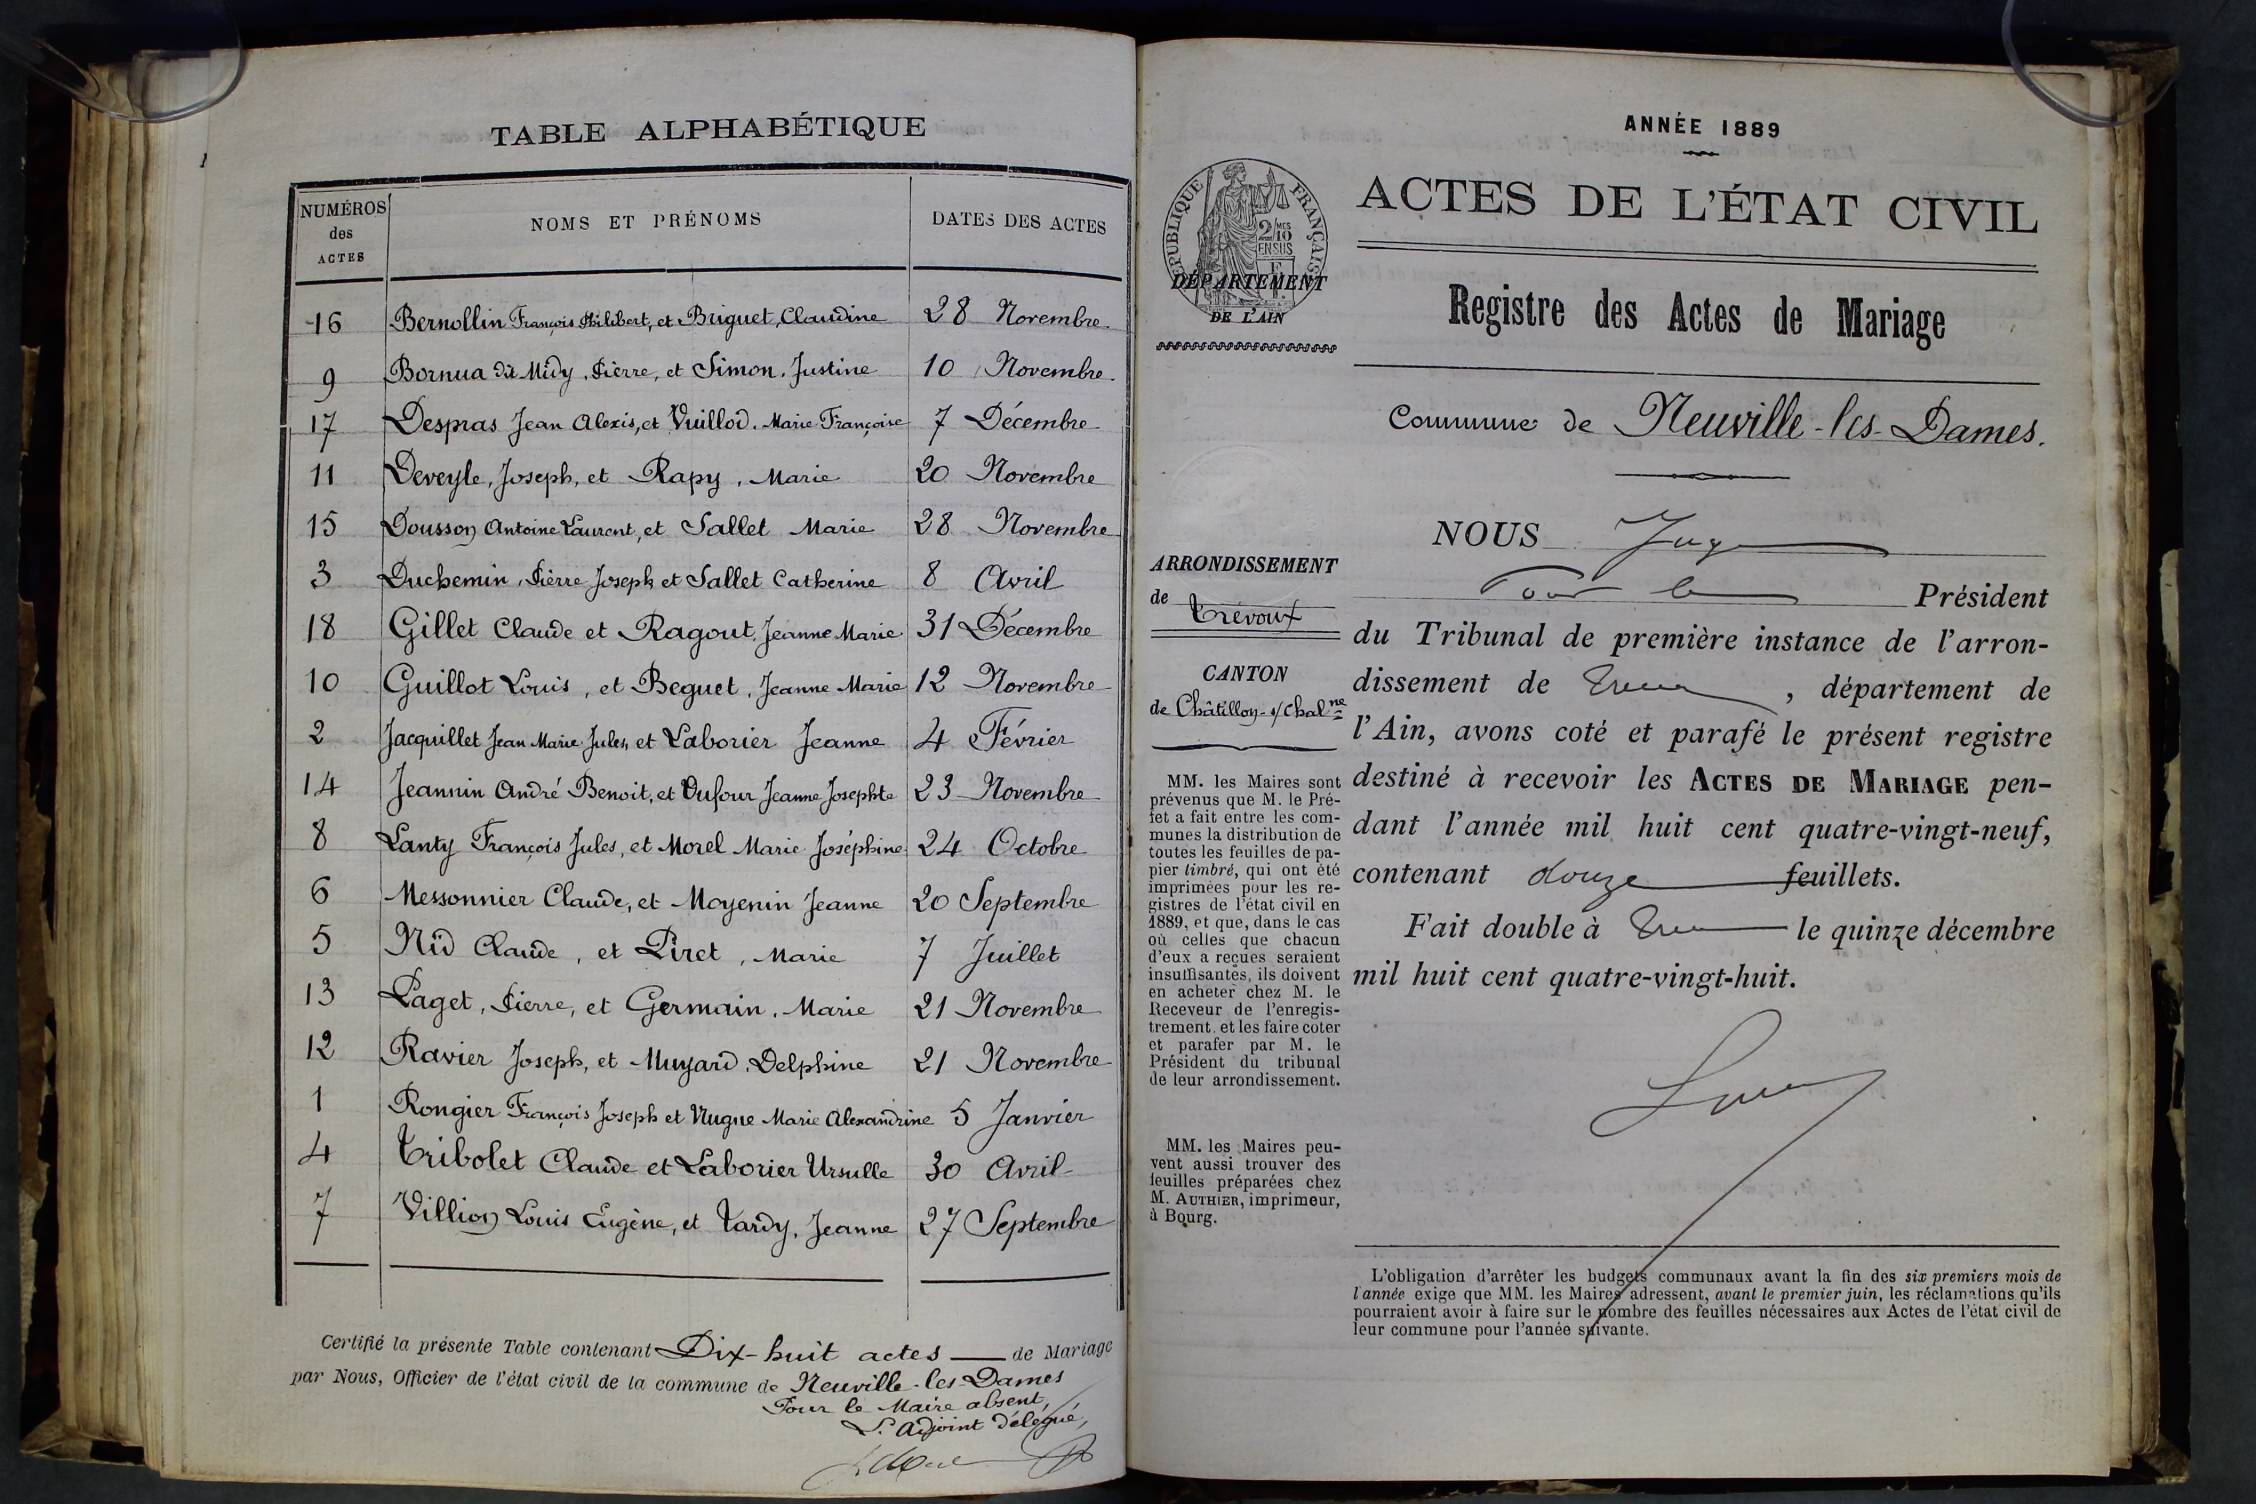 TABLE ALPHABÉTIQUE
NUMÉROS des ACTES
NOMS ET PRÉNOMS
DATES DES ACTES
16 Bernollin François Philibert, et Briguet, Claudine 28 Novembre
9 Bornua dit Midy, Pierre, et Simon, Justine 10 Novembre
17 Despras Jean Alexis, et Vuillod, Marie Françoise 7 Décembre
11 Deveyle, Joseph, et Rapy, Marie 20 Novembre
15 Dousson Antoine Laurent, et Sallet Marie 28 Novembre
3 Duchemin, Pierre Joseph et Sallet Catherine 8 Avril
18 Gillet Claude et Ragout, Jeanne Marie 31 Décembre
10 Guillot Louis, et Beguet, Jeanne Marie 12 Novembre
2 Jacquillet Jean Marie Jules, et Laborier Jeanne 4 Février
14 Jeannin André Benoit, et Dufour Jeanne Josephte 23 Novembre
8 Lanty François Jules, et Morel Marie Joséphine 24 Octobre
6 Messonnier Claude, et Moyenin Jeanne 20 Septembre
5 Nid Claude, et Piret, Marie 7 Juillet
13 Paget, Pierre, et Germain, Marie 21 Novembre
12 Ravier Joseph, et Muyard, Delphine 21 Novembre
1 Rongier François Joseph et Nugue Marie Alexandrine 5 Janvier
4 Tribolet Claude et Laborier Ursulle 30 Avril
7 Villion Louis Eugène, et Tardy, Jeanne 27 Septembre
Certifié la présente Table contenant Dix-huit actes de Mariage
par Nous, Officier de l'état civil de la commune de Neuville-les-Dames
Pour le Maire absent,
L'Adjoint délégué,
ANNÉE 1889
RÉPUBLIQUE FRANÇAISE
2/10 MES
EN SUS
DÉPARTEMENT
DE L'AIN
ACTES DE L'ÉTAT CIVIL
Registre des Actes de Mariage
Commune de Neuville-les-Dames.
ARRONDISSEMENT
de Trévoux
CANTON
de Châtillon-s/Chalne
MM. les Maires sont
prévenus que M. le Pré-
fet a fait entre les com-
munes la distribution de
toutes les feuilles de pa-
pier timbré, qui ont été
imprimées pour les re-
gistres de l'état civil en
1889, et que, dans le cas
où celles que chacun
d'eux a reçues seraient
insuffisantes, ils doivent
en acheter chez M. le
Receveur de l'enregis-
trement, et les faire coter
et parafer par M. le
Président du tribunal
de leur arrondissement.
MM. les Maires peu-
vent aussi trouver des
feuilles préparées chez
M. AUTHIER, imprimeur,
à Bourg.
NOUS Juge
Pour le Président
du Tribunal de première instance de l'arron-
dissement de Trevoux, département de
l'Ain, avons coté et parafé le présent registre
destiné à recevoir les ACTES DE MARIAGE pen-
dant l'année mil huit cent quatre-vingt-neuf,
contenant douze feuillets.
Fait double à Trevoux le quinze décembre
mil huit cent quatre-vingt-huit.
L'obligation d'arrêter les budgets communaux avant la fin des six premiers mois de
l'année exige que MM. les Maires adressent, avant le premier juin, les réclamations qu'ils
pourraient avoir à faire sur le nombre des feuilles nécessaires aux Actes de l'état civil de
leur commune pour l'année suivante.